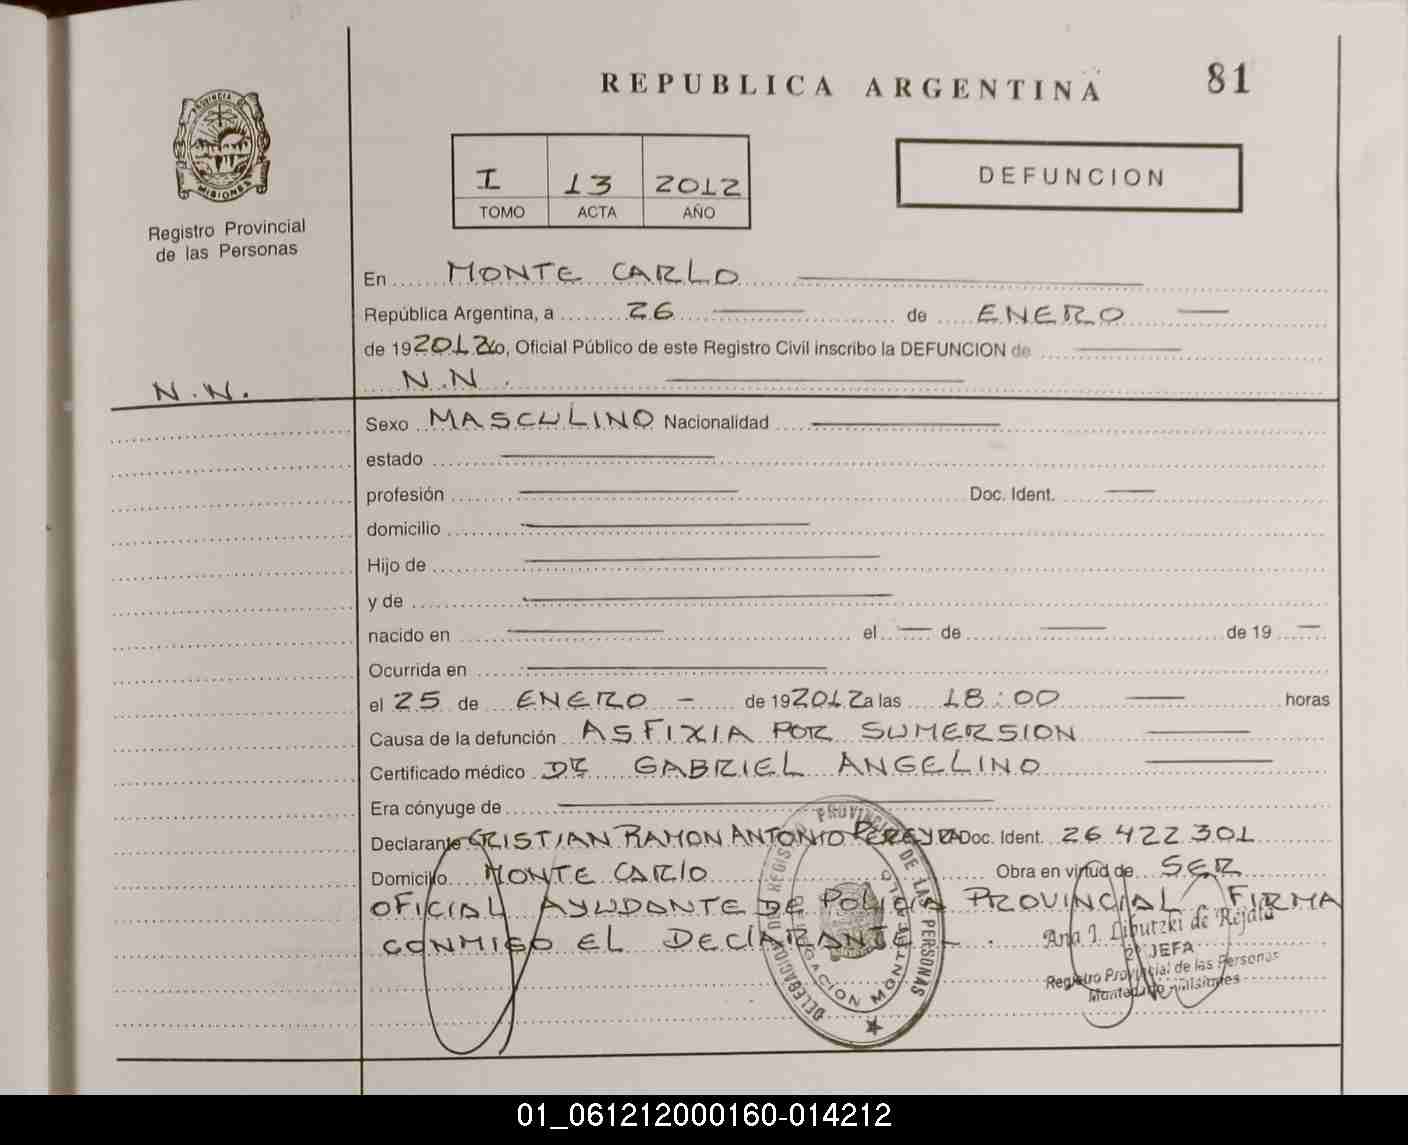 REPUBLICA ARGENTINA
81
PROVINCIA DE
MISIONES
Registro Provincial
de las Personas
I 13 2012
TOMO ACTA AÑO
DEFUNCION
En MONTE CARLO
República Argentina, a 26 de ENERO
de 192012 Yo, Oficial Público de este Registro Civil inscribo la DEFUNCION de
N.N.
N.N.
Sexo MASCULINO Nacionalidad
estado
profesión Doc. Ident.
domicilio
Hijo de
y de
nacido en el de de 19
Ocurrida en
el 25 de ENERO - de 192012 a las 18:00 horas
Causa de la defunción ASFIXIA POR SUMERSION
Certificado médico DR GABRIEL ANGELINO
Era cónyuge de
Declarante CRISTIAN RAMON ANTONIO PEREYRA Doc. Ident. 26 422 301
Domicilio MONTE CARLO Obra en virtud de SER
OFICIAL AYUDANTE DE POLICIA PROVINCIAL FIRMA
CONMIGO EL DECLARANTE -.
DELEGACION DEL REGISTRO PROVINCIAL DE LAS PERSONAS
DELEGACION MONTECARLO
Ana J. Libutzki de Rejala
2° JEFA
Registro Provincial de las Personas
Montecarlo - Misiones
01_061212000160-014212